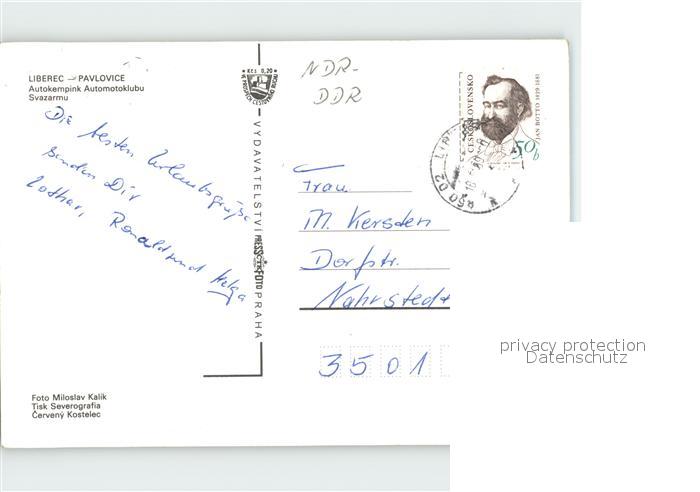 LIBEREC – PAVLOVICE
Autokempink Automotoklubu
Svazarmu
Die besten Urlaubsgrüße
senden Dir
Lothar, Ronald und Helga
Foto Miloslav Kalík
Tisk Severografia
Červený Kostelec
Kčs 0,20
VYDAVATELSTVÍ PRESSFOTO PRAHA
NDR-
DDR
ČESKOSLOVENSKO
JAN BOTTO 1829-1881
50h
460 02
Frau
M. Kersden
Dorfstr.
Nahrstedt
3501
privacy protection
Datenschutz